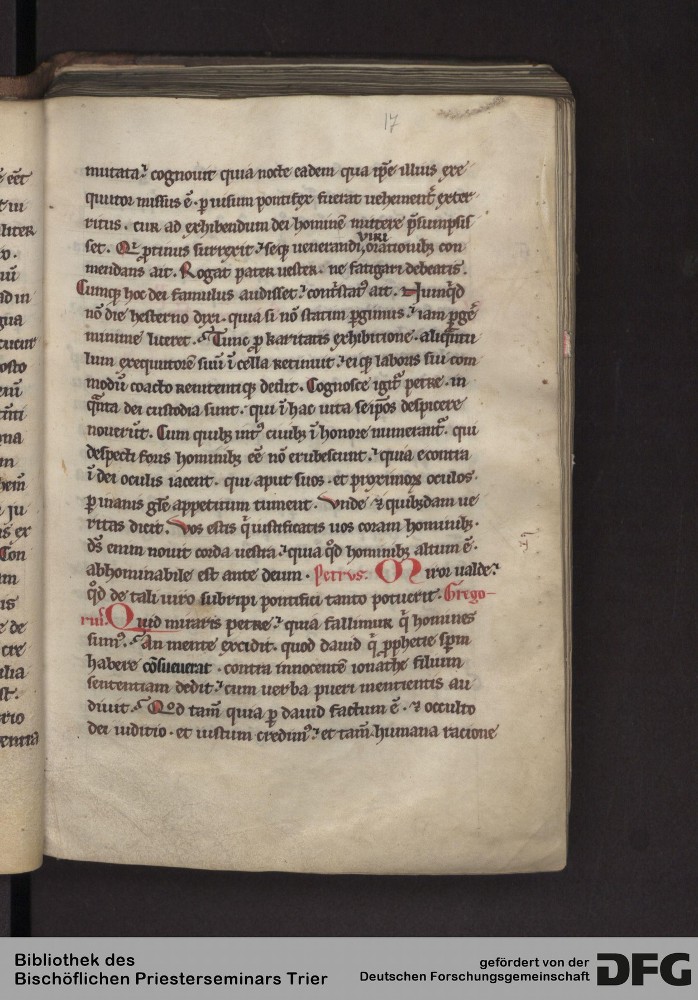 17
mutata? cognouit quia nocte eadem qua ip̄e illius exe
quitor missus ē · p̱ uisum pontifex fuerat uehement̄ exter
ritus · cur ad exhibendum dei hominē mittere p̄sumpsis
set. Qi p̱tinus surrexit ? seq; uenerandi uiri orationib; con
mendans ait. Rogat pater uester · ne fatigari debeatis.
Cumq; hoc dei famulus audisset ? cont̄status ait. Nunq̄d
nō die hesterno dixi · quia si nō statim p̱gimus ? iam p̱ge̅
minime liceret. Tunc p̱ karitatis exhibitione · aliq̄ntu
lum exequutorē suū ī cella retinuit ? eiq; laboris sui com
modū coacto renitentiq; dedit. Cognosce igit̄ petre · in
q̄nta dei custodia sunt · qui ī hac uita seip̄os despicere
nouerūt. Cum quib; int̄ ciuib; ī honore numerant̄. qui
despecti foris hominib; eē nō erubescunt ? quia econtra
ī dei oculis iacent · qui aput suos · et proximorꝝ oculos ·
p̱ inanis gl̄e appetitum tument. Vnde ⁊ quib;dam ue
ritas dicit. Vos estis q̄ iustificatis uos coram hominib; ·
d̄s enim nouit corda uestra ? quia q̄d hominib; altum ē ·
abhominabile est ante deum · Petrvs. Miror ualde ?
q̄d de tali uiro subripi pontifici tanto potuerit. Grego-
rius. Quid miraris petre ? quia fallimur q̄ homines
sum⁹. An mente excidit · quod dauid q̄ p̱phetie sp̄m
habere cōsueuerat · contra innocentē ionathe filium
sententiam dedit ? cum uerba pueri mentientis au
diuit. Qod tam̄ quia p̱ dauid factum ē · ⁊ occulto
dei iuditio · et iustum credim⁹ ? et tam̄ humana racione
Bibliothek des
Bischöflichen Priesterseminars Trier
gefördert von der
Deutschen Forschungsgemeinschaft
DFG